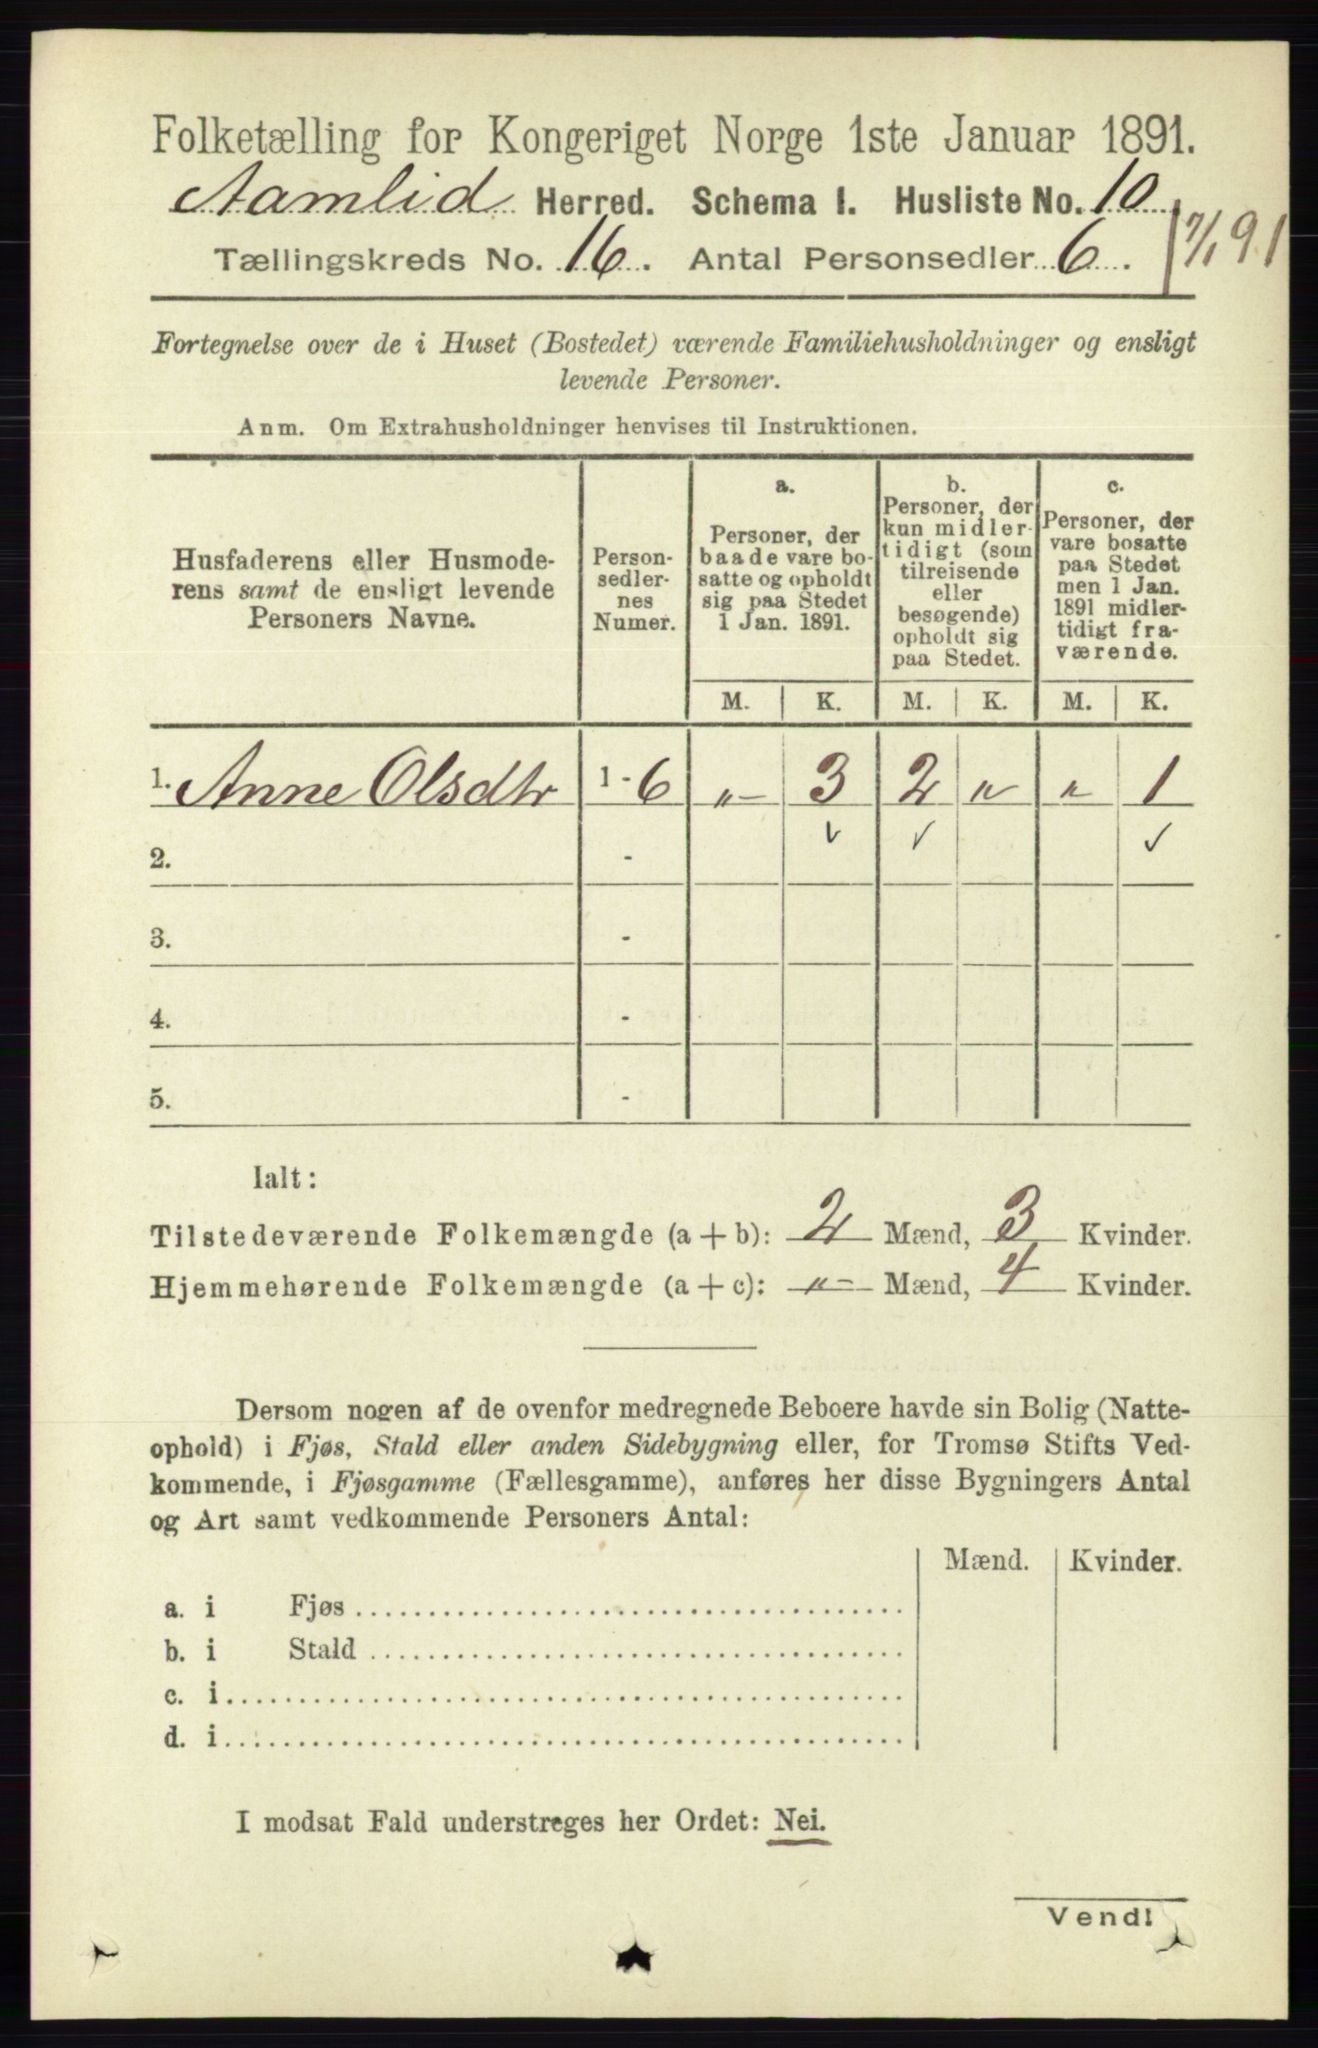 Folketælling for Kongeriget Norge 1ste Januar 1891.
Aamlid Herred. Schema I. Husliste No. 10
Tællingskreds No. 16. Antal Personsedler 6. 7/1 91
Fortegnelse over de i Huset (Bostedet) værende Familiehusholdninger og ensligt
levende Personer.
Anm. Om Extrahusholdninger henvises til Instruktionen.
Husfaderens eller Husmode-
rens samt de ensligt levende
Personers Navne.
Person-
sedler-
nes
Numer.
a.
Personer, der
baade vare bo-
satte og opholdt
sig paa Stedet
1 Jan. 1891.
b.
Personer, der
kun midler-
tidigt (som
tilreisende
eller
besøgende)
opholdt sig
paa Stedet.
c.
Personer, der
vare bosatte
paa Stedet
men 1 Jan.
1891 midler-
tidigt fra-
værende.
M. K. M. K. M. K.
1. Anne Olsdtr 1 - 6 „ – 3 2 „ „ 1
2. - ✓ ✓ ✓
3. -
4. -
5. -
Ialt:
Tilstedeværende Folkemængde (a + b): 2 Mænd, 3 Kvinder.
Hjemmehørende Folkemængde (a + c): „ – Mænd, 4 Kvinder.
Dersom nogen af de ovenfor medregnede Beboere havde sin Bolig (Natte-
ophold) i Fjøs, Stald eller anden Sidebygning eller, for Tromsø Stifts Ved-
kommende, i Fjøsgamme (Fællesgamme), anføres her disse Bygningers Antal
og Art samt vedkommende Personers Antal:
Mænd. Kvinder.
a. i Fjøs
b. i Stald
c. i
d. i
I modsat Fald understreges her Ordet: Nei.
Vend!